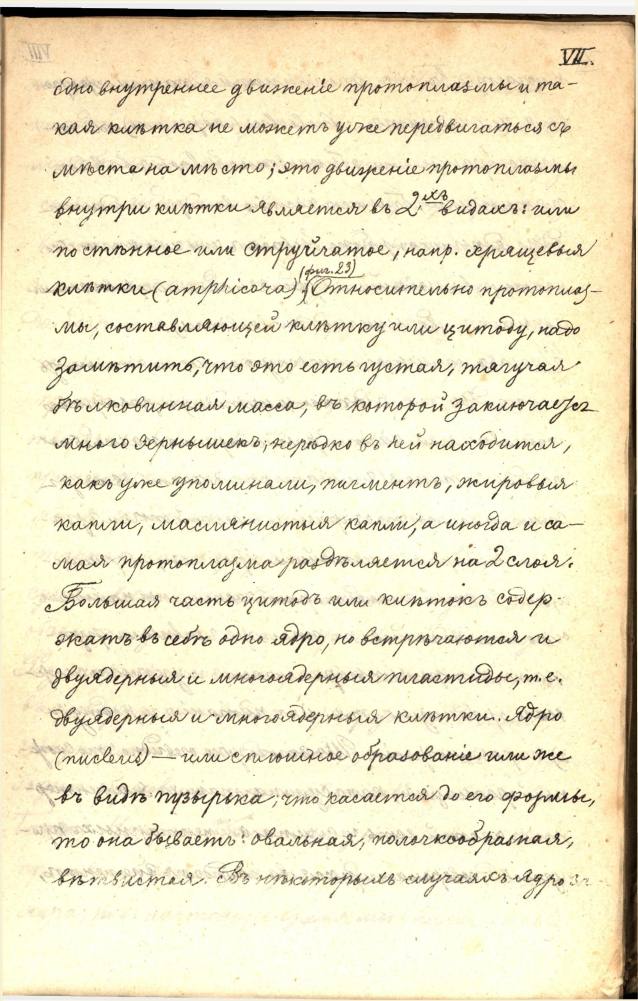 VII.
одно внутреннее движенiе протоплазмы и та-
кая клѣтка не можетъ уже передвигаться съ
мѣста на мѣсто; это движенiе протоплазмы
внутри клѣтки является въ 2хъ видахъ: или
постѣнное или струйчатое, напр. хрящевыя
(фиг. 23)
клѣтки (amphicora). Относительно протоплаз-
мы, составляющей клѣтку или цитоду, надо
замѣтить, что это есть густая, тягучая
бѣлковинная масса, въ которой заключается
много зернышекъ; нерѣдко въ ней находится,
какъ уже упоминали, пигментъ, жировыя
капли, маслянистыя капли, а иногда и са-
мая протоплазма раздѣляется на 2 слоя.
Большая часть цитодъ или клѣтокъ содер-
жатъ въ себѣ одно ядро, но встрѣчаются и
двуядерныя и многоядерныя пластиды, т.е.
двуядерныя и многоядерныя клѣтки. Ядро
(nucleus) — или сплошное образованiе или же
въ видѣ пузырька; что касается до его формы,
то она бываетъ: овальная, полочкообразная,
вѣтвистая. Въ нѣкоторыхъ случаяхъ ядро